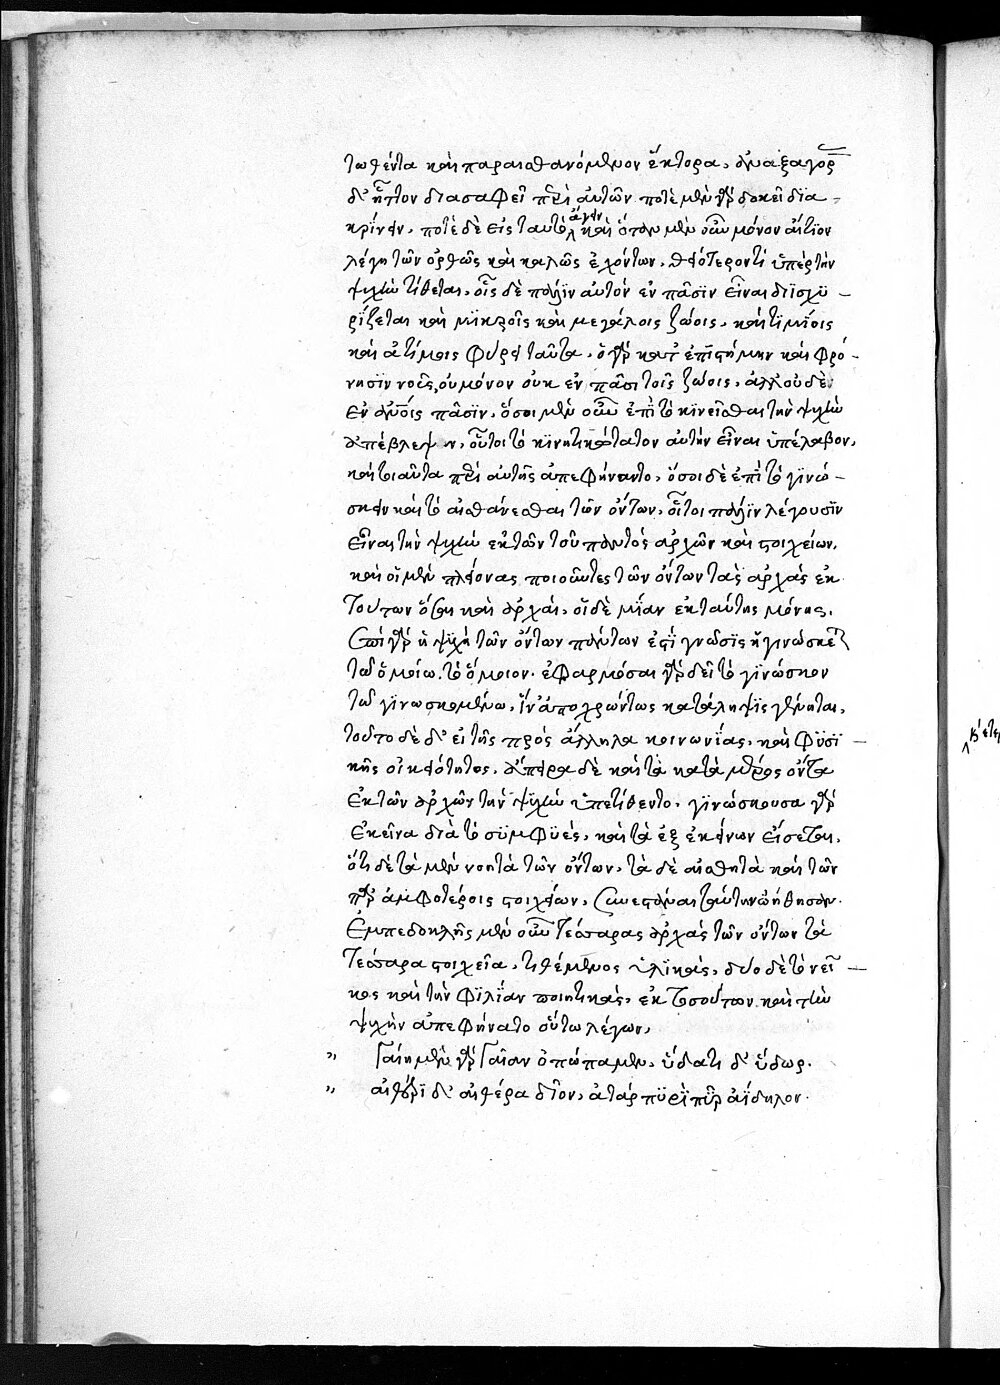 τωθέντα καὶ παραισθανόμενον ἕκτορα, ἀναξαγόρ
δ' ἧττον διασαφεῖ περὶ αὐτῶν ποτὲ μὲν γὰρ δοκεῖ δϊα-
κρίνειν, ποτὲ δὲ εἰς ταυτὸ ἄγειν καὶ ὅταν μὲν οὖν μόνον αἴτϊον
λέγη τῶν ὀρθῶς καὶ καλῶς ἐχόντων, θειότερόν τι ὑπὲρ τὴν
ψυχὴν τίθεται, οἷς δὲ πάλϊν αὐτὸν ἐν πᾶσϊν εἶναι δϊϊσχυ-
ρίζεται καὶ μϊκροῖς καὶ μεγάλοις ζώοις, καὶ τϊμίοις
καὶ ἀτίμοις φύρει ταῦτα, ὁ γὰρ κατ' ἐπϊστήμην καὶ φρό-
νησϊν νοῦς, οὐ μόνον οὐκ ἐν πᾶσι τοῖς ζώοις, ἀλλ' οὐδὲ
ἐν ἀνοις πᾶσϊν, ὅσοι μὲν οὖν ἐπὶ τὸ κϊνεῖσθαι τὴν ψυχὴν
ἀπέβλεψαν, οὗτοι τὸ κϊνητικώτατον αὐτὴν εἶναι ὑπέλαβον,
καὶ τοιαῦτα περὶ αὐτῆς ἀπεφήναντο, ὅσοι δὲ ἐπὶ τὸ γϊνώ-
σκειν καὶ τὸ αἰσθάνεσθαι τῶν ὄντων, οὗτοι πάλϊν λέγουσϊν
εἶναι τὴν ψυχὴν ἐκ τῶν τοῦ παντὸς ἀρχῶν καὶ στοιχείων,
καὶ οἱ μὲν πλείονας ποιοῦντες τῶν ὄντων τὰς ἀρχὰς ἐκ
τούτων ὅσαι καὶ ἀρχαί, οἱ δὲ μϊαν ἐκ ταύτης μόνης,
ἐπεὶ γὰρ ἡ ψϋχὴ τῶν ὄντων πάντων ἐστὶ γνῶσϊς ἣ γινώσκει
τῶ ὁμοίω τὸ ὅμοιον. ἐφαρμόσαι γὰρ δεῖ τὸ γϊνώσκον
τῶ γϊνωσκομένω, ἵν' ἀποχρώντως κατάληψϊς γένηται,
τοῦτο δὲ δ' ἐι τῆς πρὸς ἄλληλα κοινωνίας, καὶ φϋσϊ-
κῆς οἰκειότητος, ἅπερ ἄρα δὲ καὶ τὰ κατὰ μέρος ὄντα
ἐκ τῶν ἀρχῶν τὴν ψϋχὴν ὑπετίθεντο, γϊνώσκουσα γὰρ
ἐκεῖνα διὰ τὸ σϋμφϋὲς, καὶ τὰ ἐξ ἐκείνων εἴσεται,
ὅτι δὲ τὰ μὲν νοητὰ τῶν ὄντων, τὰ δὲ αἰσθητὰ καὶ τῶν
παρ' ἀμφοτέροις στοιχείων, συνεστάναι ταύτην ὠήθησαν.
Ἐμπεδοκλῆς μὲν οὖν τέσσαρας ἀρχὰς τῶν ὄντων τὰ
τέσσαρα στοιχεῖα, τιθέμενος ὑλϊκάς, δύο δὲ τὸ νεῖ-
κος καὶ τὴν φϊλϊαν ποιητικὰς, ἐκ τοσούτων καὶ τὴν
ψυχὴν ἀπεφήνατο οὕτω λέγων,
" Γαίη μὲν γὰρ Γαῖαν ὀπώπαμεν, ὕδατι δ' ὕδωρ.
" αἰθέρϊ δ' αἰθέρα δῖον, ἀτὰρ πϋρὶ πῦρ ἀΐδηλον.